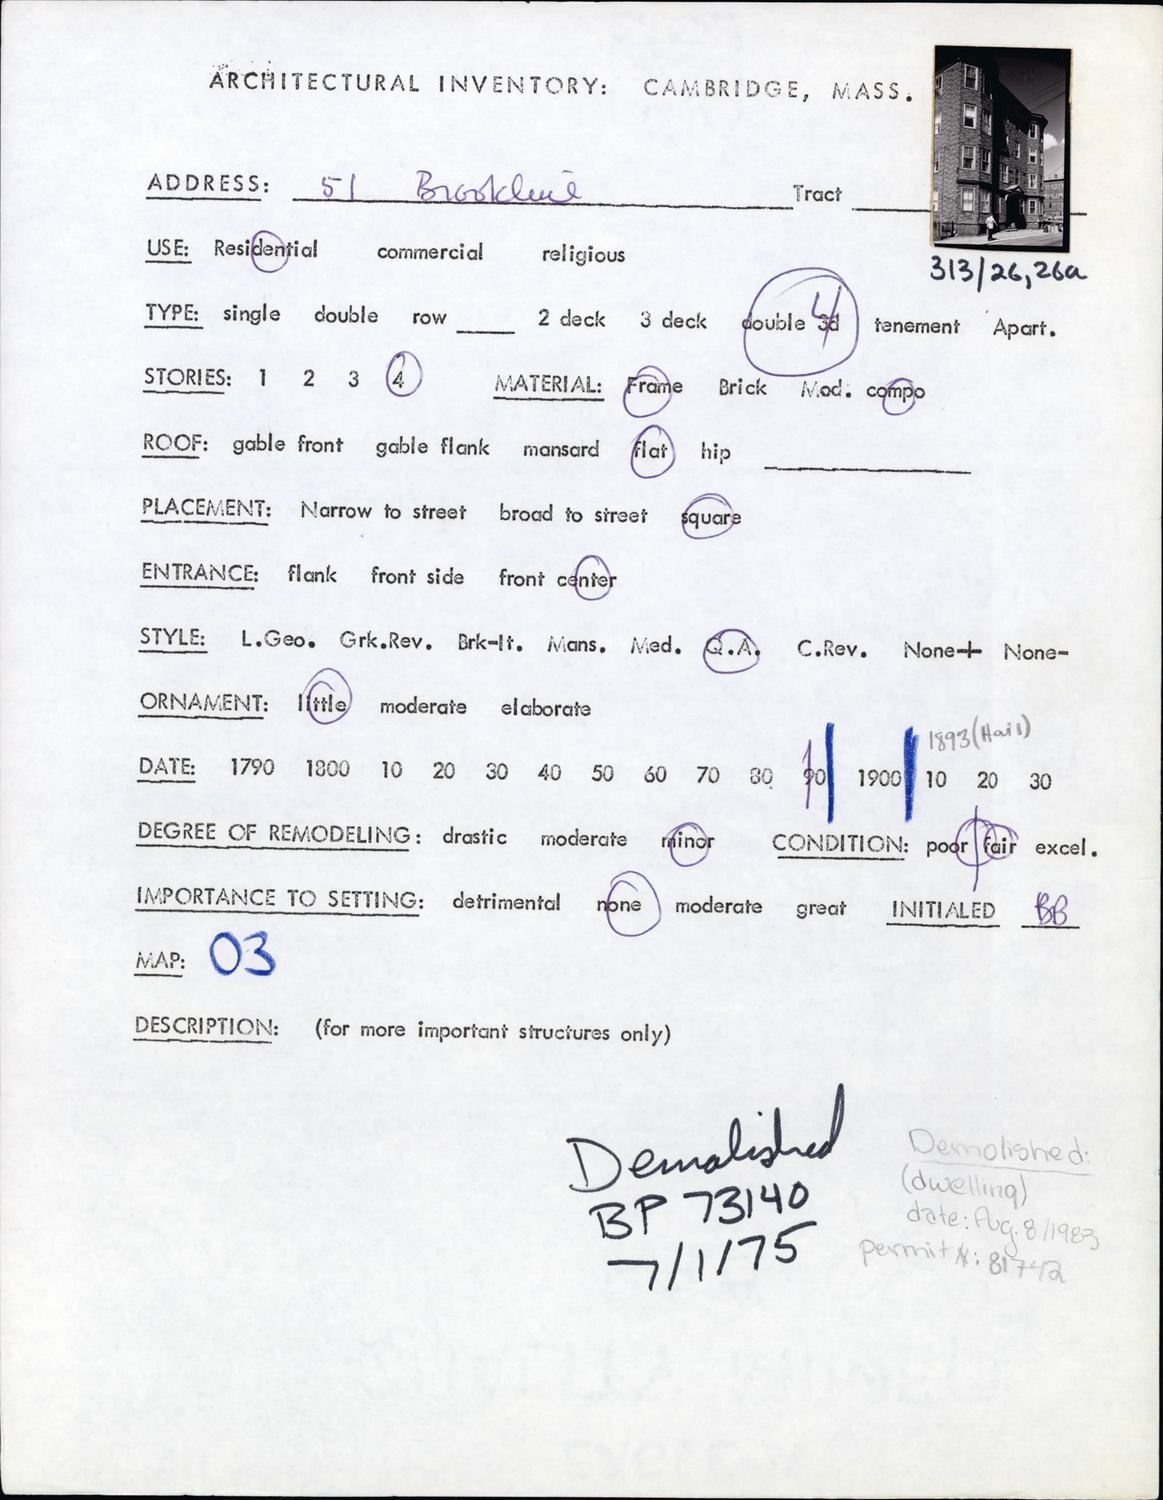 ARCHITECTURAL INVENTORY: CAMBRIDGE, MASS.
ADDRESS: 51 Brookline Tract
313/26,26a
USE: Residential commercial religious
TYPE: single double row ____ 2 deck 3 deck double 3d 4 tenement Apart.
STORIES: 1 2 3 4 MATERIAL: Frame Brick Mod. compo
ROOF: gable front gable flank mansard flat hip
PLACEMENT: Narrow to street broad to street square
ENTRANCE: flank front side front center
STYLE: L.Geo. Grk.Rev. Brk-It. Mans. Med. Q.A. C.Rev. None+ None-
ORNAMENT: little moderate elaborate
1893 (Hail)
DATE: 1790 1800 10 20 30 40 50 60 70 80 90 1900 10 20 30
DEGREE OF REMODELING: drastic moderate minor CONDITION: poor fair excel.
IMPORTANCE TO SETTING: detrimental none moderate great INITIALED BB
MAP: 03
DESCRIPTION: (for more important structures only)
Demolished
BP 73140
7/1/75
Demolished:
(dwelling)
date: Aug. 8/1983
permit #: 81742